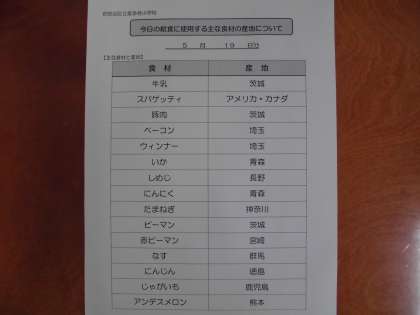 今日の給食に使用する主な食材の産地について
5 月 19 日分
【主な食材と産地】
食材 産地
牛乳 茨城
スパゲッティ アメリカ・カナダ
豚肉 茨城
ベーコン 埼玉
ウィンナー 埼玉
いか 青森
しめじ 長野
にんにく 青森
たまねぎ 神奈川
ピーマン 茨城
赤ピーマン 宮崎
なす 群馬
にんじん 徳島
じゃがいも 鹿児島
アンデスメロン 熊本